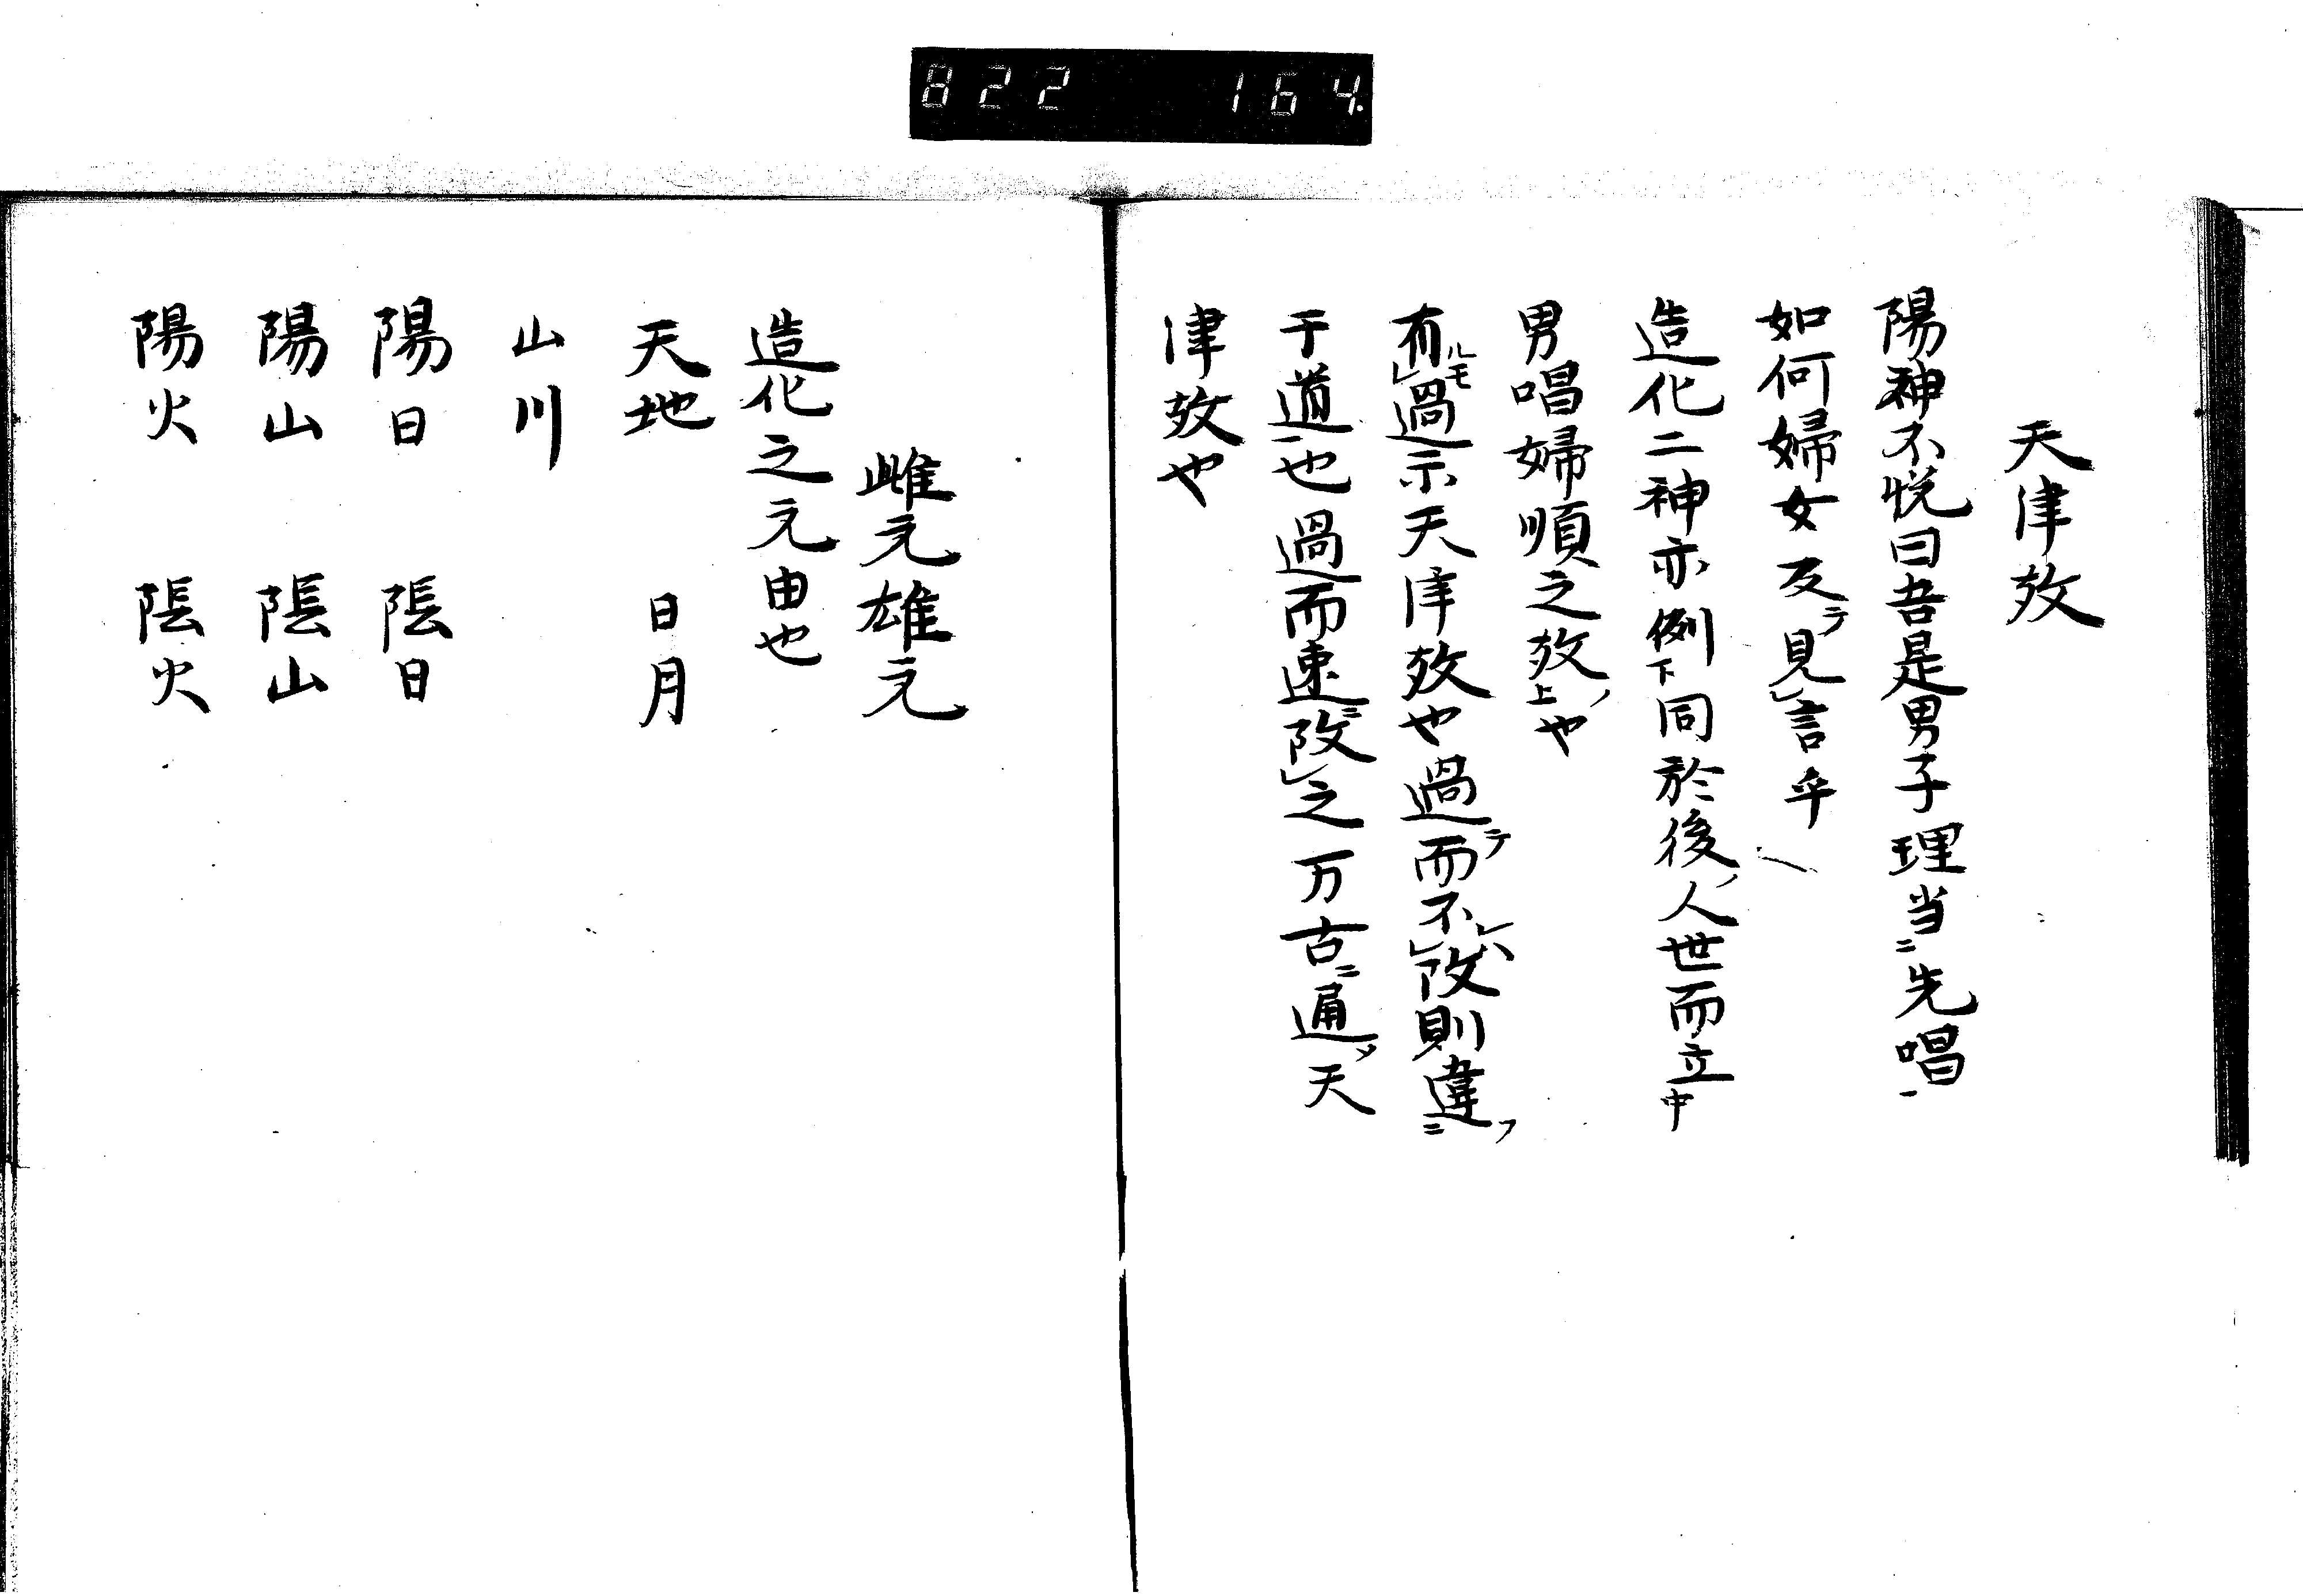 822 164
天津效
陽神不悦曰吾是男子理当ニ先唱一
如何婦女反テ見レ言乎
造化二神亦例下同於後ノ人世而立中
男唱婦順之效上ノ也
有ルモレ過示天津效也過テ而不レハレ改則違フニ
于道一也過而速ニ改レ之万古ニ通メ天
津效也
雌元雄元
造化之元由也
天地 日月
山川
陽日 陰日
陽山 陰山
陽火 陰火